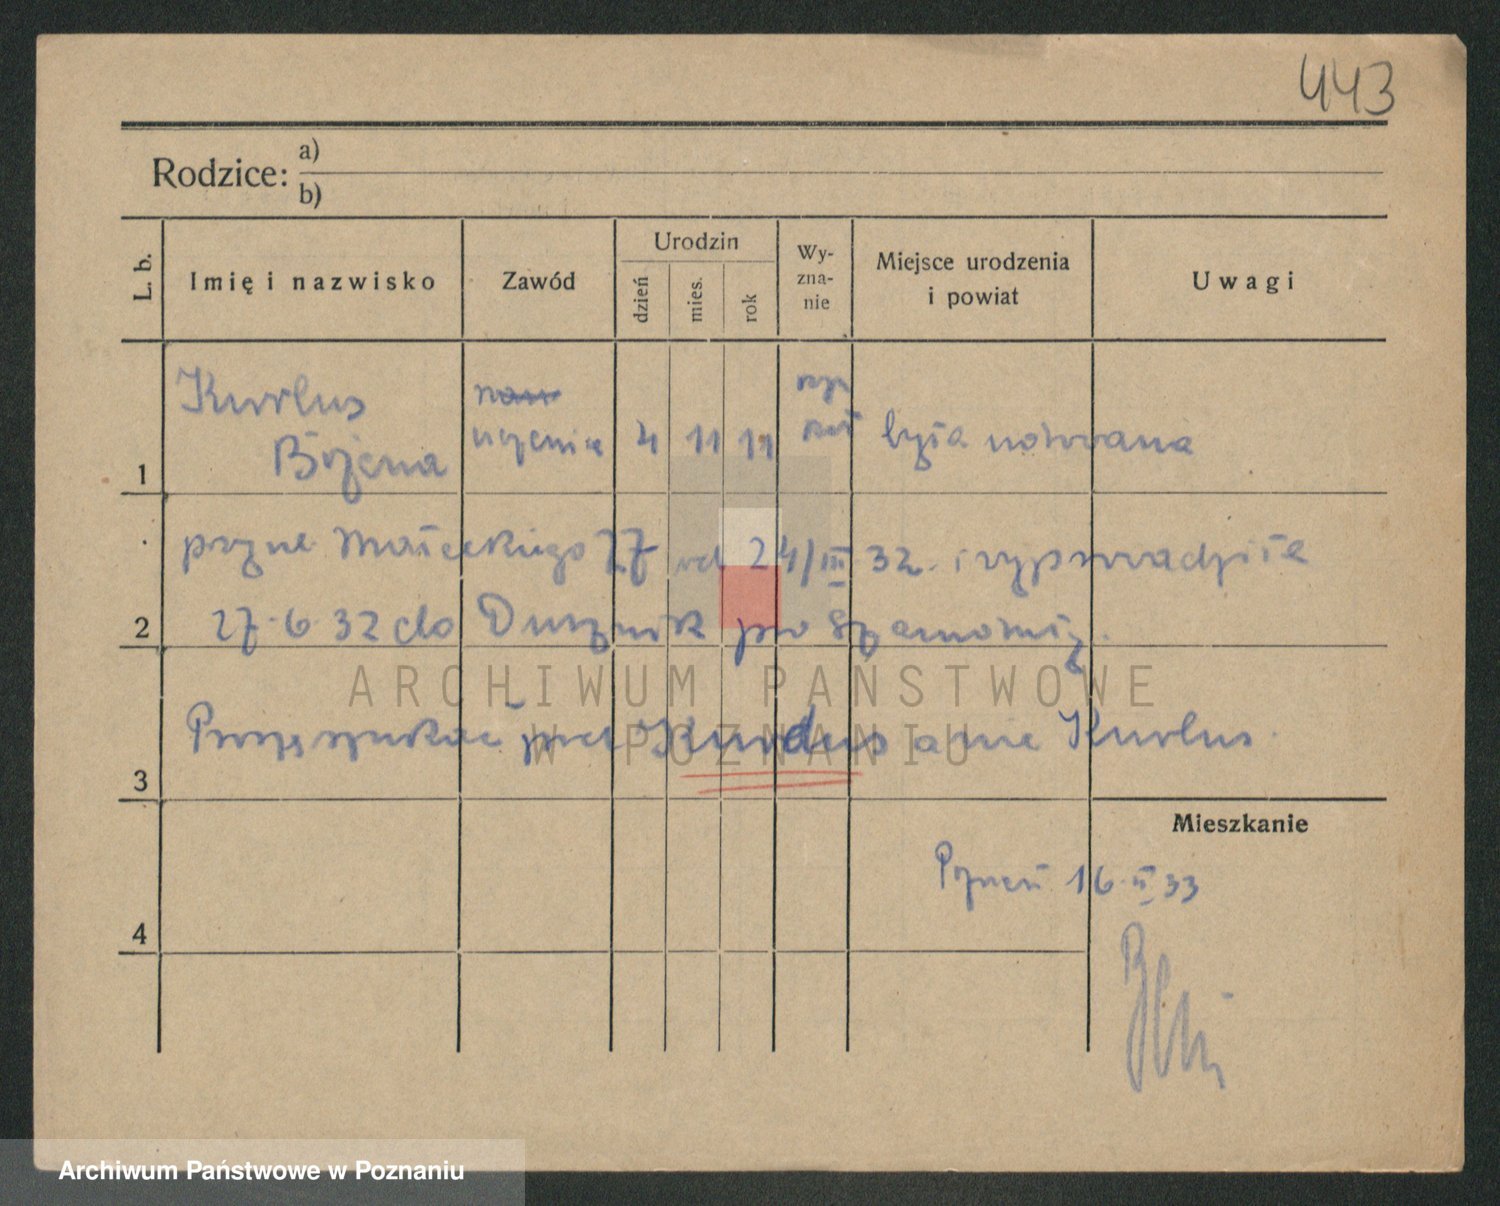 443
Rodzice: a)
b)
L. b.
Imię i nazwisko
Zawód
Urodzin
dzień
mies.
rok
Wy-
zna-
nie
Miejsce urodzenia
i powiat
Uwagi
Kurlus
Bożena
uczenica
4 11 11
rzym
kat
była notowana
1
przy ul. Małeckiego 27 od 24/III 32. i wyprowadziła
27.6.32 do Dusznik pow Szamotuły.
2
ARCHIWUM PAŃSTWOWE
W POZNANIU
jest Kurdus a nie Kurlus.
3
Mieszkanie
Poznań 16.II 33
4
Archiwum Państwowe w Poznaniu